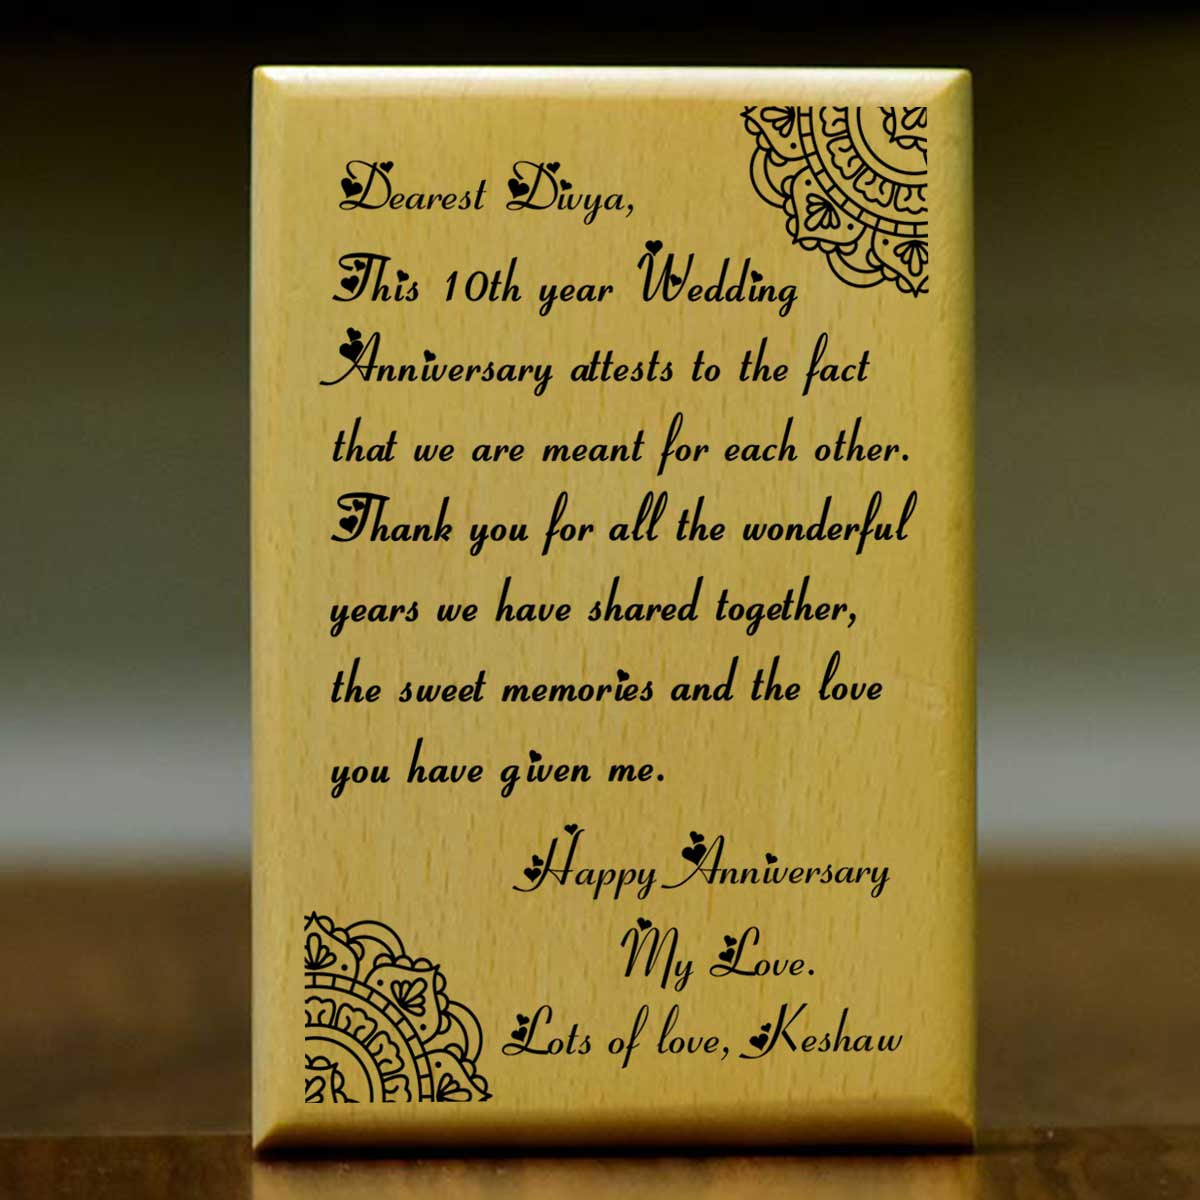 Dearest Divya,
This 10th year Wedding
Anniversary attests to the fact
that we are meant for each other.
Thank you for all the wonderful
years we have shared together,
the sweet memories and the love
you have given me.
Happy Anniversary
My Love.
Lots of love, Keshaw